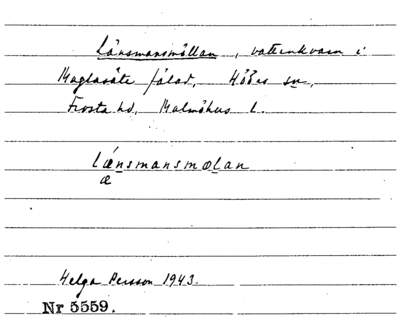 Länsmansmöllan, vattenkvarn i
Maglasäte fälad, Höörs sn,
Frosta hd, Malmöhus l.
lǽnsmansmœlan
æ
Helga Persson 1943.
Nr 5559.